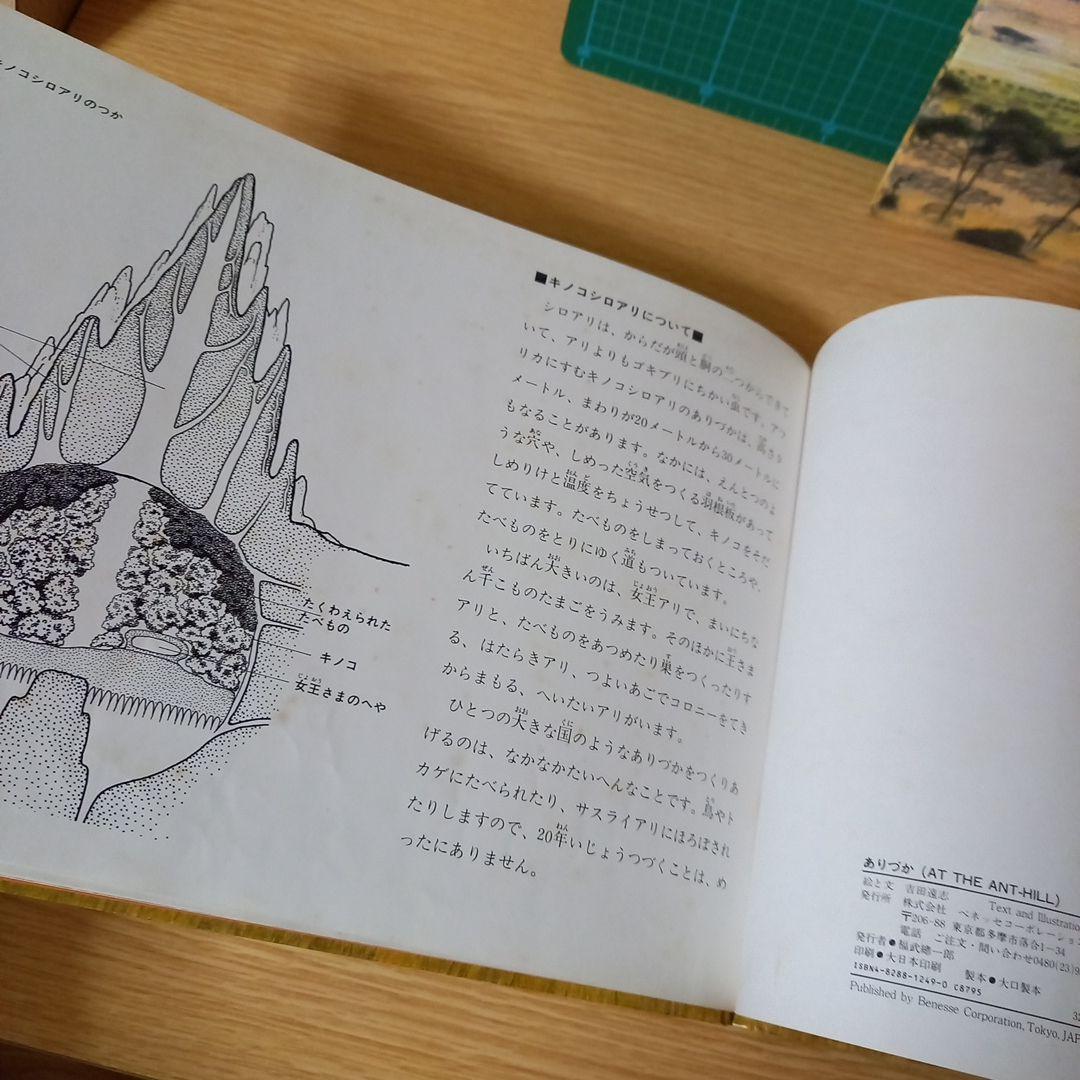 キノコシロアリのつか
たくわえられた
たべもの
キノコ
女王さまのへや
■キノコシロアリについて■
シロアリは、からだが頭と胴の二つからできて
いて、アリよりもゴキブリにちかい虫です。アフ
リカにすむキノコシロアリのありづかは、高さ
メートル、まわりが20メートルから30メートルに
もなることがあります。なかには、えんとつのよ
うな穴や、しめった空気をつくる羽根板があって
しめりけと温度をちょうせつして、キノコをそだ
てています。たべものをしまっておくところや、
たべものをとりにゆく道もついています。
いちばん大きいのは、女王アリで、まいにちな
ん千こものたまごをうみます。そのほかに王さま
アリと、たべものをあつめたり巣をつくったりす
る、はたらきアリ、つよいあごでコロニーをてき
からまもる、へいたいアリがいます。
ひとつの大きな国のようなありづかをつくりあ
げるのは、なかなかたいへんなことです。鳥やト
カゲにたべられたり、サスライアリにほろぼされ
たりしますので、20年いじょうつづくことは、め
ったにありません。
ありづか (AT THE ANT-HILL)
絵と文 吉田遠志 Text and Illustration
発行所 株式会社 ベネッセコーポレーション
〒206-88 東京都多摩市落合1-34
電話 ご注文・問い合わせ0480(23)9
発行者●福武總一郎
印刷●大日本印刷 製本●大口製本
ISBN4-8288-1249-0 C8795
32
Published by Benesse Corporation, Tokyo, JAP